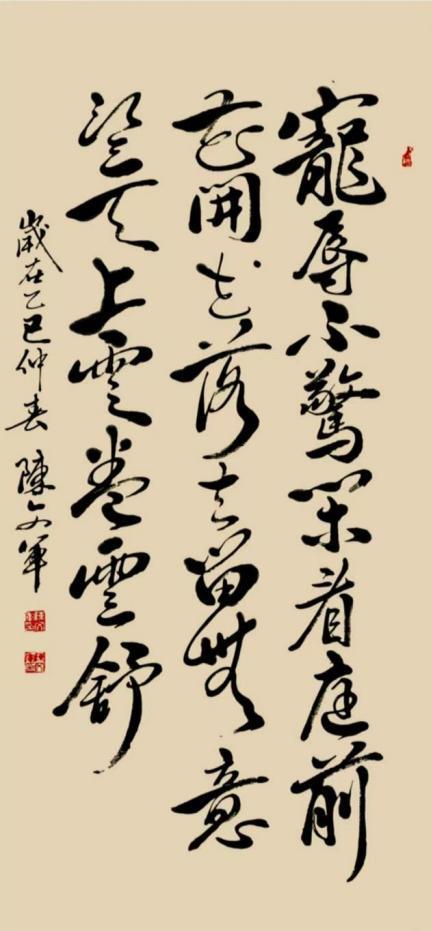 寵辱不驚閑看庭前
花開花落去留無意
望天上雲卷雲舒
歲在乙巳仲春 陳文軍